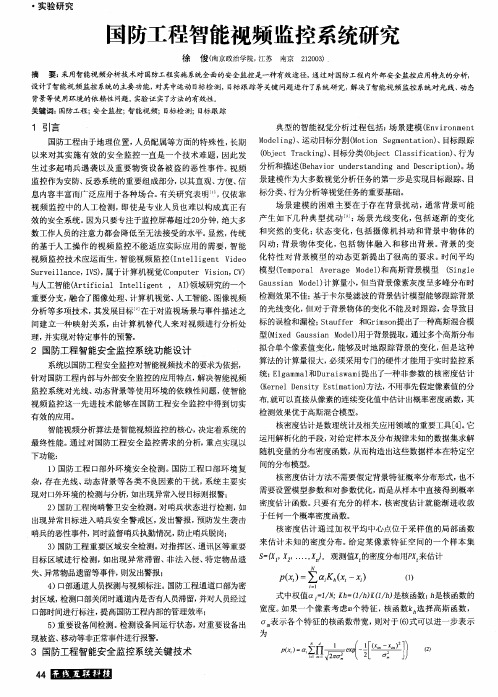 ·实验研究
国防工程智能视频监控系统研究
徐 俊(南京政治学院,江苏 南京 212003)
摘 要:采用智能视频分析技术对国防工程实施系统全面的安全监控是一种有效途径。通过对国防工程内外部安全监控应用特点的分析,
设计了智能视频监控系统的主要功能,对其中运动目标检测、目标跟踪等关键问题进行了系统研究,解决了智能视频监控系统对光线、动态
背景等使用环境的依赖性问题,实验证实了方法的有效性。
关键词:国防工程;安全监控;智能视频;目标检测;目标跟踪
1 引言
国防工程由于地理位置、人员配属等方面的特殊性,长期
以来对其实施有效的安全监控一直是一个技术难题,因此发
生过多起哨兵遇袭以及重要物资设备被盗的恶性事件。视频
监控作为安防、反恐系统的重要组成部分,以其直观、方便、信
息内容丰富而广泛应用于各种场合。有关研究表明[1],仅依靠
视频监控中的人工检测,即使是专业人员也难以构成真正有
效的安全系统,因为只要专注于监控屏幕超过20分钟,绝大多
数工作人员的注意力都会降低至无法接受的水平。显然,传统
的基于人工操作的视频监控不能适应实际应用的需要,智能
视频监控技术应运而生。智能视频监控(Intelligent Video
Surveillance,IVS),属于计算机视觉(Computer Vision,CV)
与人工智能(Artificial Intelligent , AI)领域研究的一个
重要分支,融合了图像处理、计算机视觉、人工智能、图像视频
分析等多项技术,其发展目标[2]在于对监视场景与事件描述之
间建立一种映射关系,由计算机替代人来对视频进行分析处
理,并实现对特定事件的预警。
2 国防工程智能安全监控系统功能设计
系统以国防工程安全监控对智能视频技术的要求为依据,
针对国防工程内部与外部安全监控的应用特点,解决智能视频
监控系统对光线、动态背景等使用环境的依赖性问题,使智能
视频监控这一先进技术能够在国防工程安全监控中得到切实
有效的应用。
智能视频分析算法是智能视频监控的核心,决定着系统的
最终性能。通过对国防工程安全监控需求的分析,重点实现以
下功能:
1)国防工程口部外环境安全检测。国防工程口部环境复
杂,存在光线、动态背景等各类不良因素的干扰,系统主要实
现对口外环境的检测与分析,如出现异常入侵目标则报警;
2)国防工程岗哨警卫安全检测。对哨兵状态进行检测,如
出现异常目标进入哨兵安全警戒区,发出警报,预防发生袭击
哨兵的恶性事件,同时监督哨兵执勤情况,防止哨兵脱岗;
3)国防工程重要区域安全检测。对指挥区、通讯区等重要
目标区域进行检测,如出现异常滞留、非法入侵、特定物品遗
失、异常物品遗留等事件,则发出警报;
4)口部通道人员探测与视频标注。国防工程通道口部为密
封区域,检测口部关闭时通道内是否有人员滞留,并对人员经过
口部时间进行标注,提高国防工程内部的管理效率;
5)重要设备间检测。检测设备间运行状态,对重要设备出
现被盗、移动等非正常事件进行报警。
3 国防工程智能安全监控系统关键技术
典型的智能视觉分析过程包括:场景建模(Environment
Modeling)、运动目标分割(Motion Segmentation)、目标跟踪
(Object Tracking)、目标分类(Object Classification)、行为
分析和描述(Behavior understanding and Description)。场
景建模作为大多数视觉分析任务的第一步是实现目标跟踪、目
标分类、行为分析等视觉任务的重要基础。
场景建模的困难主要在于存在背景扰动,通常背景可能
产生如下几种典型扰动[3]:场景光线变化,包括逐渐的变化
和突然的变化;状态变化,包括摄像机抖动和背景中物体的
闪动;背景物体变化,包括物体融入和移出背景。背景的变
化特性对背景模型的动态更新提出了很高的要求。时间平均
模型(Temporal Average Model)和高斯背景模型 (Single
Gaussian Model)计算量小,但当背景像素灰度呈多峰分布时
检测效果不佳;基于卡尔曼滤波的背景估计模型能够跟踪背景
的光线变化,但对于背景物体的变化不能及时跟踪,会导致目
标的误检和漏检;Stauffer 和Grimson提出了一种高斯混合模
型(Mixed Gaussian Model)用于背景提取,通过多个高斯分布
拟合单个像素值变化,能够及时地跟踪背景的变化,但是这种
算法的计算量很大,必须采用专门的硬件才能用于实时监控系
统;Elgammal和Duraiswami提出了一种非参数的核密度估计
(Kernel Density Estimation)方法,不用事先假定像素值的分
布,就可以直接从像素的连续变化值中估计出概率密度函数,其
检测效果优于高斯混合模型。
核密度估计是数理统计及相关应用领域的重要工具[4],它
运用解析化的手段,对给定样本及分布规律未知的数据集求解
随机变量的分布密度函数,从而构造出这些数据样本在特定空
间的分布模型。
核密度估计方法不需要假定背景特征概率分布形式,也不
需要设置模型参数和对参数优化,而是从样本中直接得到概率
密度估计函数。只要有充分的样本,核密度估计就能渐进收敛
于任何一个概率密度函数。
核密度估计通过加权平均中心点位于采样值的局部函数
来估计未知的密度分布。给定某像素特征空间的一个样本集
S={X1, X2, ..., Xn}, 观测值Xt的密度分布用PXt来估计
p(xt)=∑αiKh(xt−xi) (1)
式中权值αi=1/N;Kh=(1/h)K(1/h)是核函数;h是核函数的
宽度。如果一个像素考虑m个特征,核函数kh选择高斯函数,
σm表示各个特征的核函数带宽,则对于(6)式可以进一步表示
为
44 无线互联科技